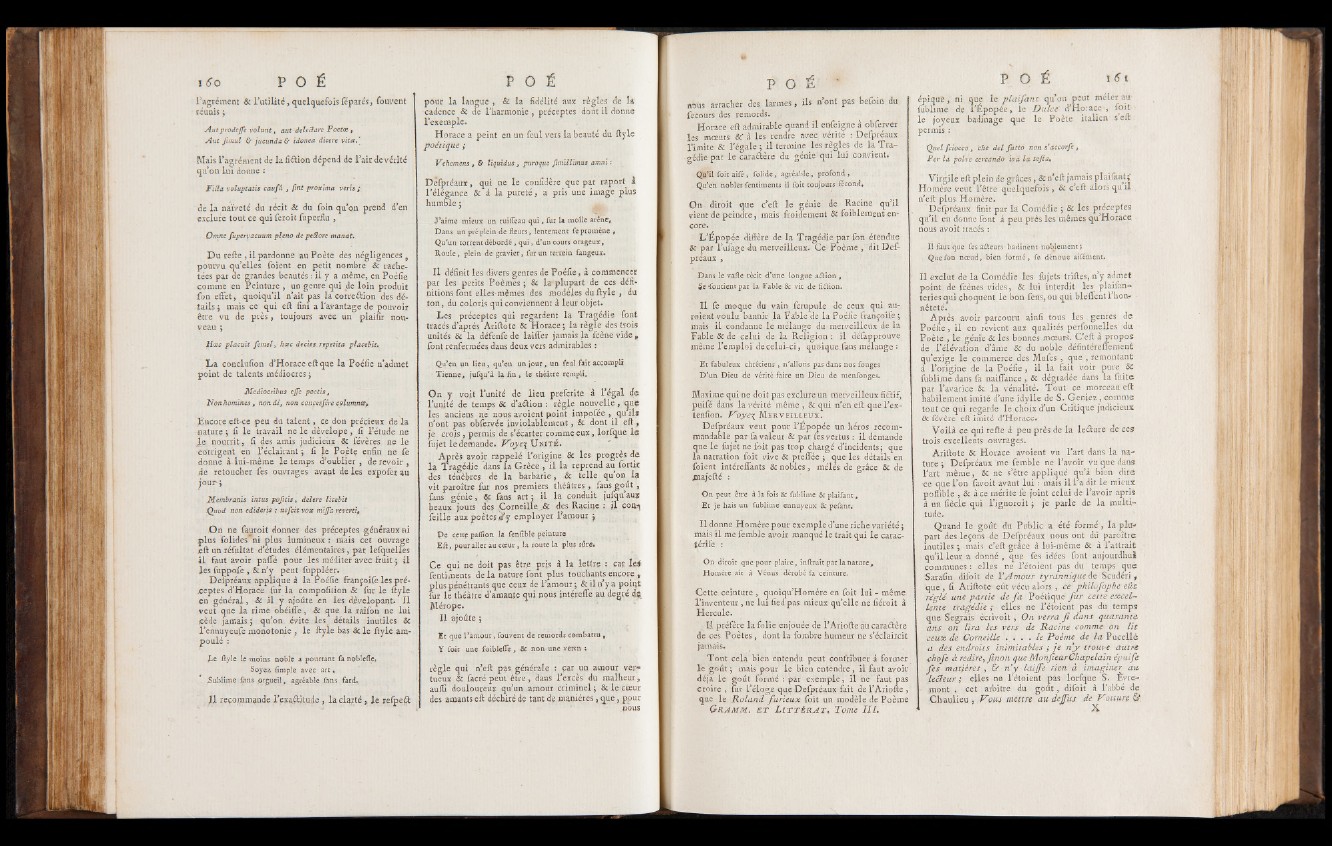 160 P O É
l'agrément & l'utilité, quelquefois ſéparés, ſouvent
réunis ;
Aut prodeſſe volunt, aut delectare Poetæ,
Aut ſimul & jucunda & idonea dicere vitæ.
Mais l'agrément de la fiction dépend de l'air de vérité
qu'on lui donne :
Ficta voluptatis cauſâ, ſint proxima veris ;
de la naïveté du récit & du ſoin qu'on prend d'en
exclure tout ce qui ſeroit ſuperflu,
Omne ſupervacuum pleno de pectore manat.
Du reſte, il pardonne au Poète des négligences,
pourvu qu'elles ſoient en petit nombre & rache-
tées par de grandes beautés : il y a même, en Poéſie
comme en Peinture, un genre qui de loin produit
ſon effet, quoiqu'il n'ait pas la correction des dé-
tails ; mais ce qui eſt fini a l'avantage de pouvoir
être vu de près, toujours avec un plaiſir nou-
veau ;
Hæc placuit ſemel, hæc decies repetita placebit.
La concluſion d'Horace eſt que la Poéſie n'admet
point de talents médiocres ;
Mediocribus eſſe poetis,
Non homines, non dî, non conceſſere columnæ,
Encore eſt-ce peu du talent, ce don précieux de la
nature ; ſi le travail ne le dèvelope, ſi l'étude ne
le nourrit, ſi des amis judicieux & ſévères ne le
corrigent en l'éclairant ; ſi le Poète enfin ne ſe
donne à lui-même le temps d'oublier, de revoir,
de retoucher ſes ouvrages avant de les expoſer au
jour ;
Membranis intus poſitis, delere licebit
Quod non edideris : neſcit vox miſſa reverti,
On ne ſauroit donner des préceptes généraux ni
plus ſolides ni plus lumineux : mais cet ouvrage
eſt un réſultat d'études élémentaires, par leſquelles
il faut avoir paſſé pour les méditer avec fruit ; il
les ſuppoſe, & n'y peut ſuppléer.
Deſpréaux applique à la Poéſie françoiſe les pré-
ceptes d'Horace ſur la compoſition & ſur le ſtyle
en général, & il y ajoûte en les dévelopant. Il
veut que la rime obéiſſe, & que la raiſon ne lui
cède jamais ; qu'on évite les détails inutiles &
l'ennuyeuſe monotonie, le ſtyle bas & le ſtyle am-
poulé :
Le ſtyle le moins noble a pourtant ſa nobleſſe.
Soyez ſimple avec art,
Sublime ſans orgueil, agréable ſans fard.
Il recommande l'exactitude, la clarté, le reſpect
P O É
pour la langue, & la fidélité aux règles de la
cadence & de l'harmonie, préceptes dont il donne
l'exemple.
Horace a peint en un ſeul vers la beauté du ſtyle
poétique ;
Vehemens, & liquidus, puroque ſimillimus amni :
Deſpréaux, qui ne le conſidère que par raport à
l'élégance & à la pureté, a pris une image plus
humble ;
J'aime mieux un ruiſſeau qui, ſur la molle arène,
Dans un pré plein de fleurs, lentement ſe promène,
Qu'un torrent débordé, qui, d'un cours orageux,
Roule, plein de gravier, ſur un terrein fangeux.
Il définit les divers genres de Poéſie, à commencer
par les petits Poèmes ; & la plupart de ces défi-
nitions ſont elles-mêmes des modèles du ſtyle, du
ton, du coloris qui conviennent à leur objet.
Les préceptes qui regardent la Tragédie ſont
tracés d'après Ariſtote & Horace ; la règle des trois
unités & la défenſe de laiſſer jamais la ſcène vide,
ſont renfermées dans deux vers admirables :
Qu'en un lieu, qu'en un jour, un ſeul fait accompli
Tienne, juſqu'à la fin, le théâtre rempli.
On y voit l'unité de lieu preſcrite à l'égal de
l'unité de temps & d'action : règle nouvelle, que
les anciens ne nous avoient point impoſée, qu'ils
n'ont pas obſervée inviolablement, & dont il eſt,
je crois, permis de s'écarter comme eux, lorſque le
ſujet le demande. Voyez UNITÉ.
Après avoir rappelé l'origine & les progrès de
la Tragédie dans la Grèce, il la reprend au ſortir
des ténèbres de la barbarie, & telle qu'on la
vit paroître ſur nos premiers théâtres, ſans goût,
ſans génie, & ſans art ; il la conduit juſqu'aux
beaux jours des Corneille & des Racine : il con-
ſeille aux poètes d'y employer l'amour ;
De cette paſſion la ſenſible peinture
Eſt, pour aller au cœur, la route la plus sûre.
Ce qui ne doit pas être pris à la lettre : car les
ſentiments de la nature ſont plus touchants encore,
plus pénétrants que ceux de l'amour ; & il n'y a point
ſur le théâtre d'amante qui nous intéreſſe au degré de
Mérope.
Il ajoûte ;
Et que l'amour, ſouvent de remords combattu,
Y ſoit une foibleſſe, & non une vertu :
règle qui n'eſt pas générale : car un amour ver-
tueux & ſacré peut être, dans l'excès du malheur,
auſſi douloureux qu'un amour criminel ; & le cœur
des amants eſt déchiré de tant de manières, que, pour
nous
P O É
nous arracher des larmes, ils n'ont pas beſoin du
ſecours des remords.
Horace eſt admirable quand il enſeigne à obſerver
les mœurs & à les rendre avec vérité : Deſpréaux
l'imite & l'égale ; il termine les règles de la Tra-
gédie par le caractère du génie qui lui convient.
Qu'il ſoit aiſé, ſolide, agréable, profond,
Qu'en nobles ſentiments il ſoit toujours fécond,
On diroit que c'eſt le génie de Racine qu'il
vient de peindre, mais froidement & foiblement en-
core.
L'Épopée diffère de la Tragédie par ſon étendue
& par l'uſage du merveilleux. Ce Poème, dit Deſ-
préaux,
Dans le vaſte récit d'une longue action,
Se ſoutient par la Fable & vit de fiction.
Il ſe moque du vain ſcrupule de ceux qui au-
roient voulu bannir la Fable de la Poéſie françoiſe ;
mais il condanne le mélange du merveilleux de la
Fable & de celui de la Religion : il déſapprouve
même l'emploi de celui-ci, quoique ſans mélange :
Et fabuleux chrétiens, n'allons pas dans nos ſonges
D'un Dieu de vérité faire un Dieu de menſonges.
Maxime qui ne doit pas exclure un merveilleux fictif,
puiſé dans la vérité même, & qui n'en eſt que l'ex-
tenſion. Voyez MERVEILLEUX.
Deſpréaux veut pour l'Épopée un héros recom-
mandable par ſa valeur & par ſes vertus : il demande
que le ſujet ne ſoit pas trop chargé d'incidents ; que
la narration ſoit vive & preſſée ; que les détails en
ſoient intéreſſants & nobles, mêlés de grâce & de
majeſté :
On peut être à la fois & ſublime & plaiſant,
Et je hais un ſublime ennuyeux & peſant.
Il donne Homère pour exemple d'une riche variété ;
mais il me ſemble avoir manqué le trait qui le carac-
tériſe :
On diroit que pour plaire, inſtruit par la nature,
Homère ait à Vénus dérobé ſa ceinture.
Cette ceinture, quoiqu'Homère en ſoit lui-même
l'inventeur, ne lui ſied pas mieux qu'elle ne ſiéroit à
Hercule.
Il préfère la folie enjouée de l'Arioſte au caractère
de ces Poètes, dont la ſombre humeur ne s'éclaircit
jamais.
Tout cela bien entendu peut contribuer à former
le goût ; mais pour le bien entendre, il faut avoir
déjà le goût formé : par exemple, il ne faut pas
croire, ſur l'éloge que Deſpréaux fait de l'Arioſte,
que le Roland furieux ſoit un modèle de Poème
GRAMM. ET LITTÉRAT. Tome III.
P O É 161
épique, ni que le plaiſant qu'on peut mêler au
ſublime de l'Épopée, le Dulce d'Horace, ſoit
le joyeux badinage que le Poète italien s'eſt
permis :
Quel ſciocco, che del fatto non s'accorſe,
Per la polve cercando iva la teſta.
Virgile eſt plein de grâces, & n'eſt jamais plaiſant ;
Homère veut l'être quelquefois, & c'eſt alors qu'il
n'eſt plus Homère.
Deſpréaux finit par la Comédie ; & les préceptes
qu'il en donne ſont à peu près les mêmes qu'Horace
nous avoit tracés :
Il faut que ſes acteurs badinent noblement ;
Que ſon nœud, bien formé, ſe dénoue aiſément.
Il exclut de la Comédie les ſujets triſtes, n'y admet
point de ſcènes vides, & lui interdit les plaiſan-
teries qui choquent le bon ſens, ou qui bleſſent l'hon-
nêteté.
Après avoir parcouru ainſi tous les genres de
Poéſie, il en revient aux qualités perſonnelles du
Poète, le génie & les bonnes mœurs. C'eſt à propos
de l'élévation d'âme & du noble déſintéreſſement
qu'exige le commerce des Muſes, que, remontant
à l'origine de la Poéſie, il la fait voir pure &
ſublime dans ſa naiſſance, & dégradée dans la ſuite
par l'avarice & la vénalité. Tout ce morceau eſt
habilement imité d'une idylle de S. Geniez, comme
tout ce qui regarde le choix d'un Critique judicieux
& ſévère eſt imité d'Horace.
Voilà ce qui reſte à peu près de la lecture de ces
trois excellents ouvrages.
Ariſtote & Horace avoient vu l'art dans la na-
ture ; Deſpréaux me ſemble ne l'avoir vu que dans
l'art même, & ne s'être appliqué qu'à bien dire
ce que l'on ſavoit avant lui : mais il l'a dit le mieux
poſſible, & à ce mérite ſe joint celui de l'avoir apris
à un ſiècle qui l'ignoroit ; je parle de la multi-
tude.
Quand le goût du Public a été formé, la plu-
part des leçons de Deſpréaux nous ont dû paroître
inutiles ; mais c'eſt grâce à lui-même & à l'attrait
qu'il leur a donné, que ſes idées ſont aujourdhui
communes : elles ne l'étoient pas du temps que
Saraſin diſoit de l'Amour tyrannique de Scudéri,
que, ſi Ariſtote eût vécu alors, ce philoſophe eût
réglé une partie de ſa Poétique ſur cette excel-
lente tragédie ; elles ne l'étoient pas du temps
que Segrais écrivoit, On verra ſi dans quarante
ans on lira les vers de Racine comme on lit
ceux de Corneille . . . . le Poème de la Pucelle
a des endroits inimitables ; je n'y trouve autre
choſe à redire, ſinon que Monſieur Chapelain épuiſe
ſes matières, & n'y laiſſe rien à imaginer au
lecteur ; elles ne l'étoient pas lorſque S. Évre-
mont, cet arbitre du goût, diſoit à l'abbé de
Chaulieu, Vous mettre au deſſus de Voiture &
X